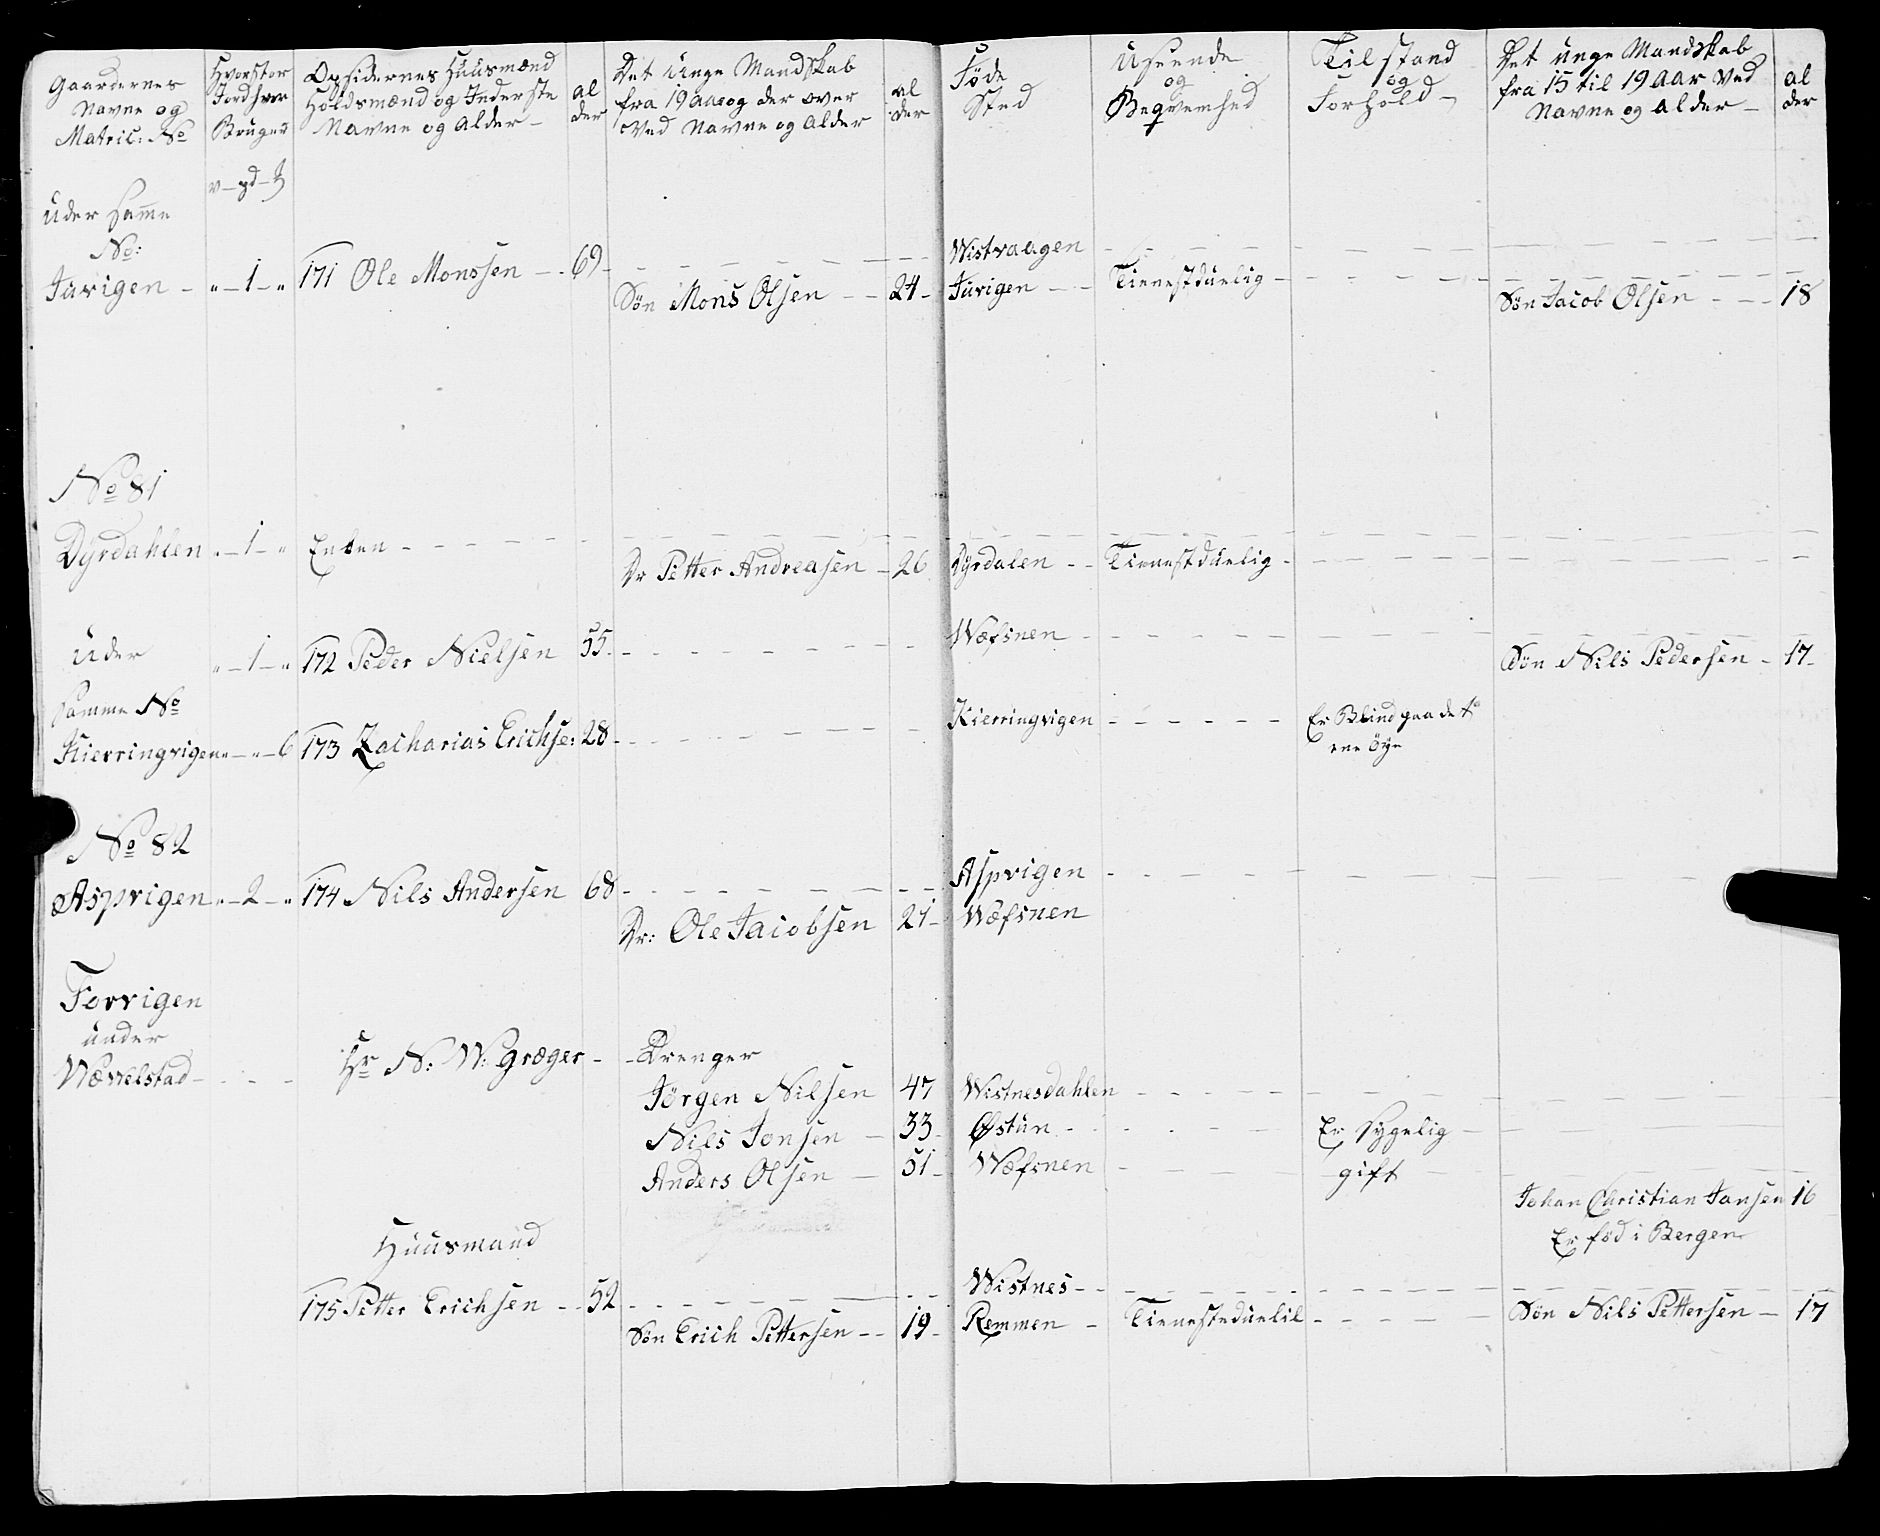 Gaardernes Navne og Matric: No
Hvorstor Jord hver Bruger
Opsidernes Huusmænd Holdsmænd og Inderste Navne og Alder
al der
Det unge Mandskab fra 19 aar og der over ved Navne og Alder
al der
Føde Sted
Useende og Beqvemhed
Tilstand og Forhold
Det unge Mandskab fra 15 til 19 Aar ved Navne og alder
al der
v - pd - 
Uder samme
No:
Wistvaagen
Jurigen - " - 1 - " 171 Ole Monssen - 69
Søn Mons Olsen - 24 - Jurigen - Tienestduelig - Søn Jacob Olsen - 18
No 81
Dyrdahlen " - 1 - " Enken
Dr Petter Andreasen - 26 Dyrdalen - Tienestduelig
Uder " - 1 - " 172 Peder Nielsen 55 - Wæfsnen
Søn Nils Pedersen - 17
samme No
Kierringvigen " - " - 6 173 Zacharias Erichse: 28 - Kierringvigen - Er Blind paa det
ene Öye
No 82
Aspvigen " - 2 - " 174 Nils Andersen 68 - Aspvigen
Dr: Ole Jacobsen 21 - Wæfsnen
Forvigen
under
Wævelstad - Hr N: W: Græger - Drenger
Jörgen Nilsen 47 Wistnesdahlen
Nils Jonsen - 33 Østun - Er Sygelig
Anders Olsen - 51 - Wæfsnen - gift
Johan Christian Jansen 16
Er föd i Bergen
Huusmand
Wistnes
175 Petter Erichsen - 52
Søn Erich Pettersen - 19 - Remmen - Tienesteduelil - Søn Nils Pettersen - 17